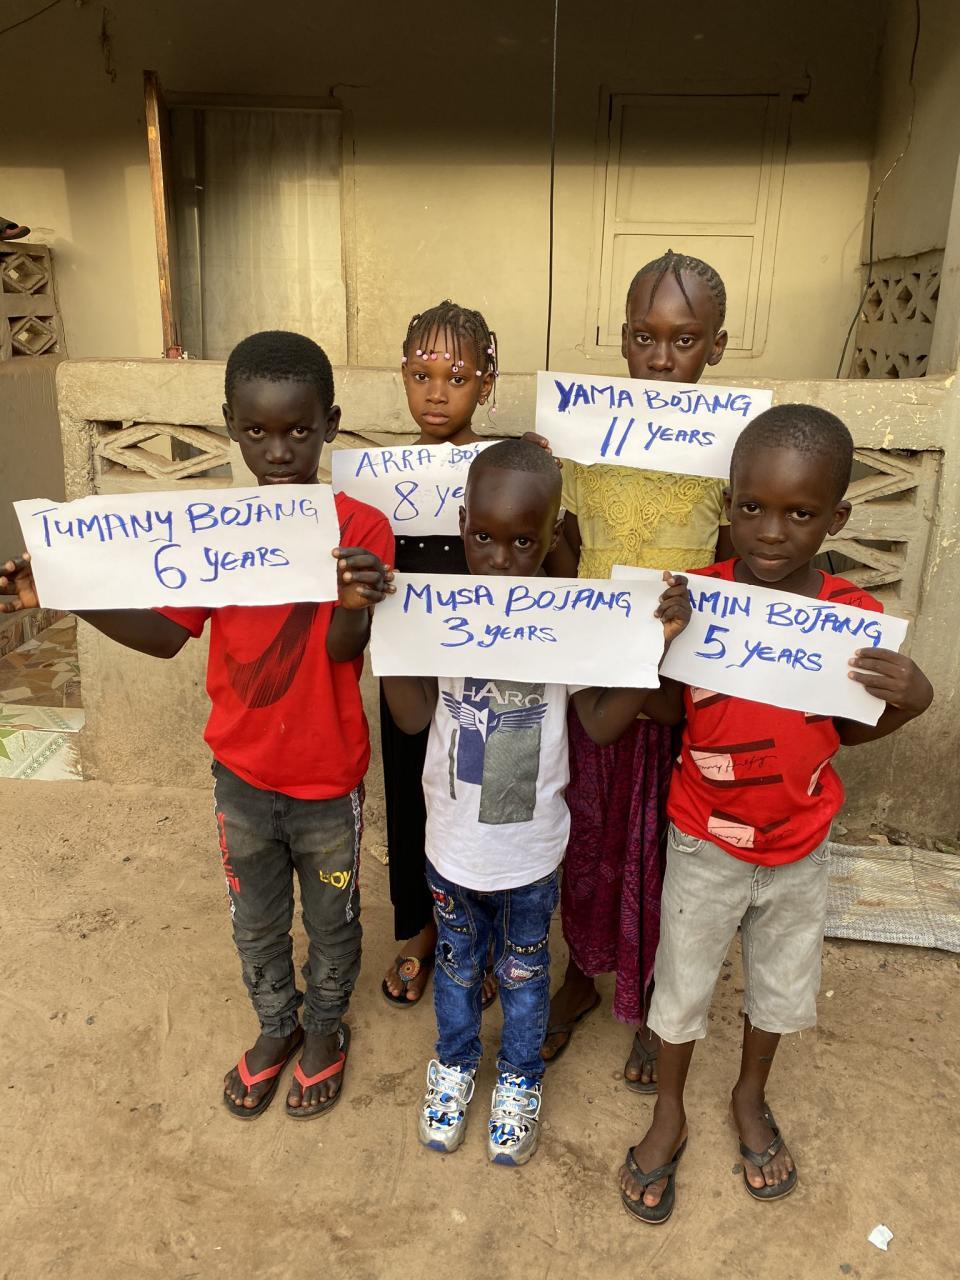 YAMA BOJANG
11 YEARS
ARRA
8
TUMANY BOJANG
6 YEARS
MUSA BOJANG
3 YEARS
AMIN BOJANG
5 YEARS
HARO
BOY